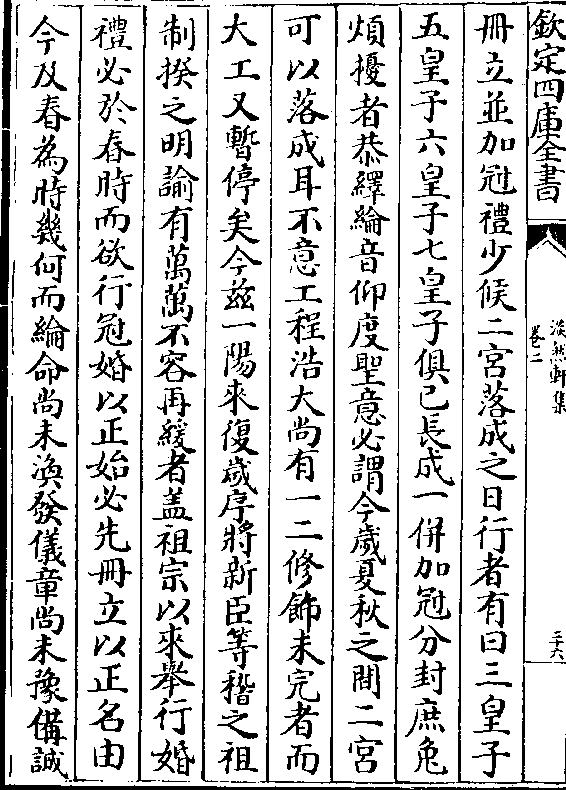 欽定四庫全書
淡然軒集
卷二
三十六
冊立並加冠禮少候二宮落成之日行者有曰三皇子
五皇子六皇子七皇子俱已長成一併加冠分封庶免
煩擾者恭繹綸音仰度聖意必謂今歲夏秋之間二宮
可以落成耳不意工程浩大尚有一二修飾未完者而
大工又暫停矣今茲一陽來復歲序將新臣等稽之祖
制揆之明諭有萬萬不容再緩者盖祖宗以來舉行婚
禮必於春時而欲行冠婚以正始必先冊立以正名由
今及春為時幾何而綸命尚未渙發儀章尚未豫備誠